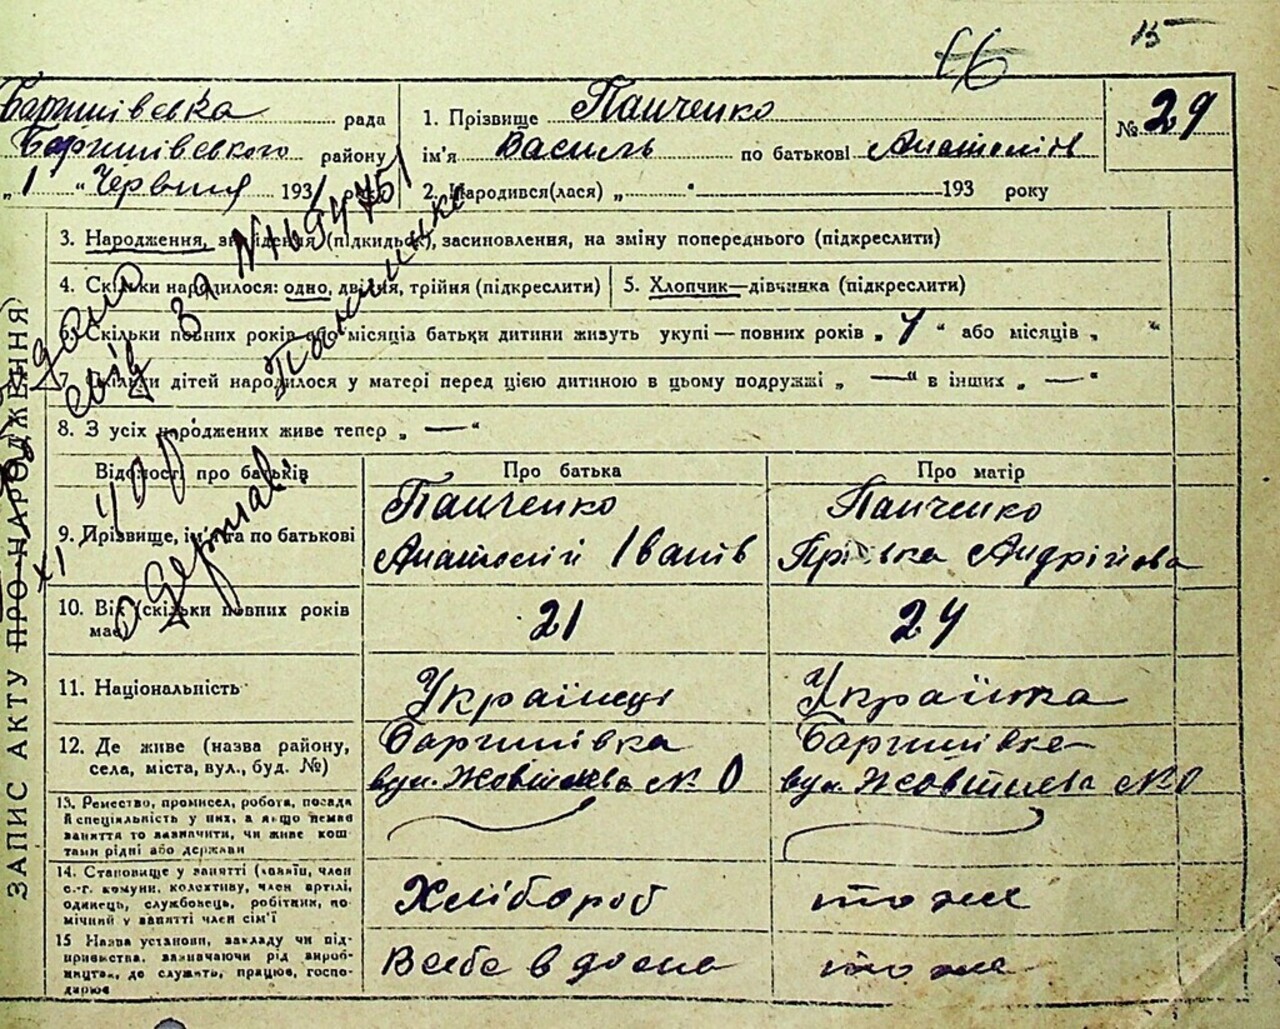 66
15
Баришівська рада
Баришівського району
„ 1 “ Червня 1931 року
1. Прізвище Панченко
ім'я Василь по батькові Анатолів
№ 29
2. Народився(лася) „ “ 193 року
3. Народження, знайдення (підкидьок), засиновлення, на зміну попереднього (підкреслити)
4. Скільки народилося: одно, двійня, трійня (підкреслити)
5. Хлопчик—дівчинка (підкреслити)
6. Скільки повних років або місяців батьки дитини живуть укупі — повних років „ 1 “ або місяців „ “
7. Скільки дітей народилося у матері перед цією дитиною в цьому подружжі „ — “ в інших „ — “
8. З усіх народжених живе тепер „ — “
Відомості про батьків
Про батька
Про матір
9. Прізвище, ім'я та по батькові
Панченко
Анатолій Іванів
Панченко
Андрійова
10. Вік (скільки повних років
має)
21
24
11. Національність
Українець
Українка
12. Де живе (назва району,
села, міста, вул., буд. №)
Баришівка
вул. Жовтнева № 0
Баришівка
вул. Жовтнева № 0
13. Ремество, промисел, робота, посада
й спеціальність у них, а якщо немає
заняття то зазначити, чи живе кош-
тами рідні або держави
14. Становище у занятті (хазяїн, член
с.-г. комуни, колективу, член артілі,
одинець, службовець, робітник, по-
мічний у занятті член сім'ї
Хлібороб
то же
15 Назва установи, закладу чи під-
приємства, зазначаючи рід вироб-
ництва, де служить, працює, госпо-
дарює
В себе в дома
то же
ЗАПИС АКТУ ПРО НАРОДЖЕННЯ